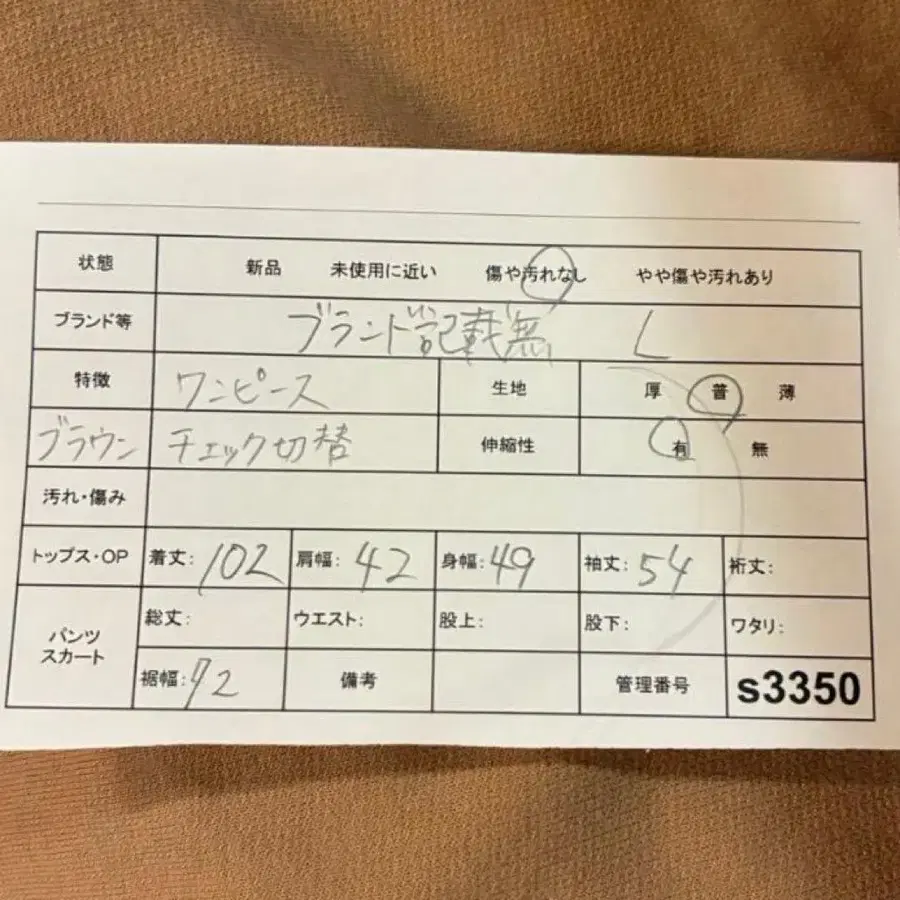 状態 新品 未使用に近い 傷や汚れなし やや傷や汚れあり
ブランド等 ブランド記載無 L
特徴 ワンピース 生地 厚 普 薄
ブラウン チェック切替 伸縮性 有 無
汚れ・傷み
トップス・OP 着丈: 102 肩幅: 42 身幅: 49 袖丈: 54 裄丈:
パンツ スカート 総丈: ウエスト: 股上: 股下: ワタリ:
裾幅: 72 備考 管理番号 s3350